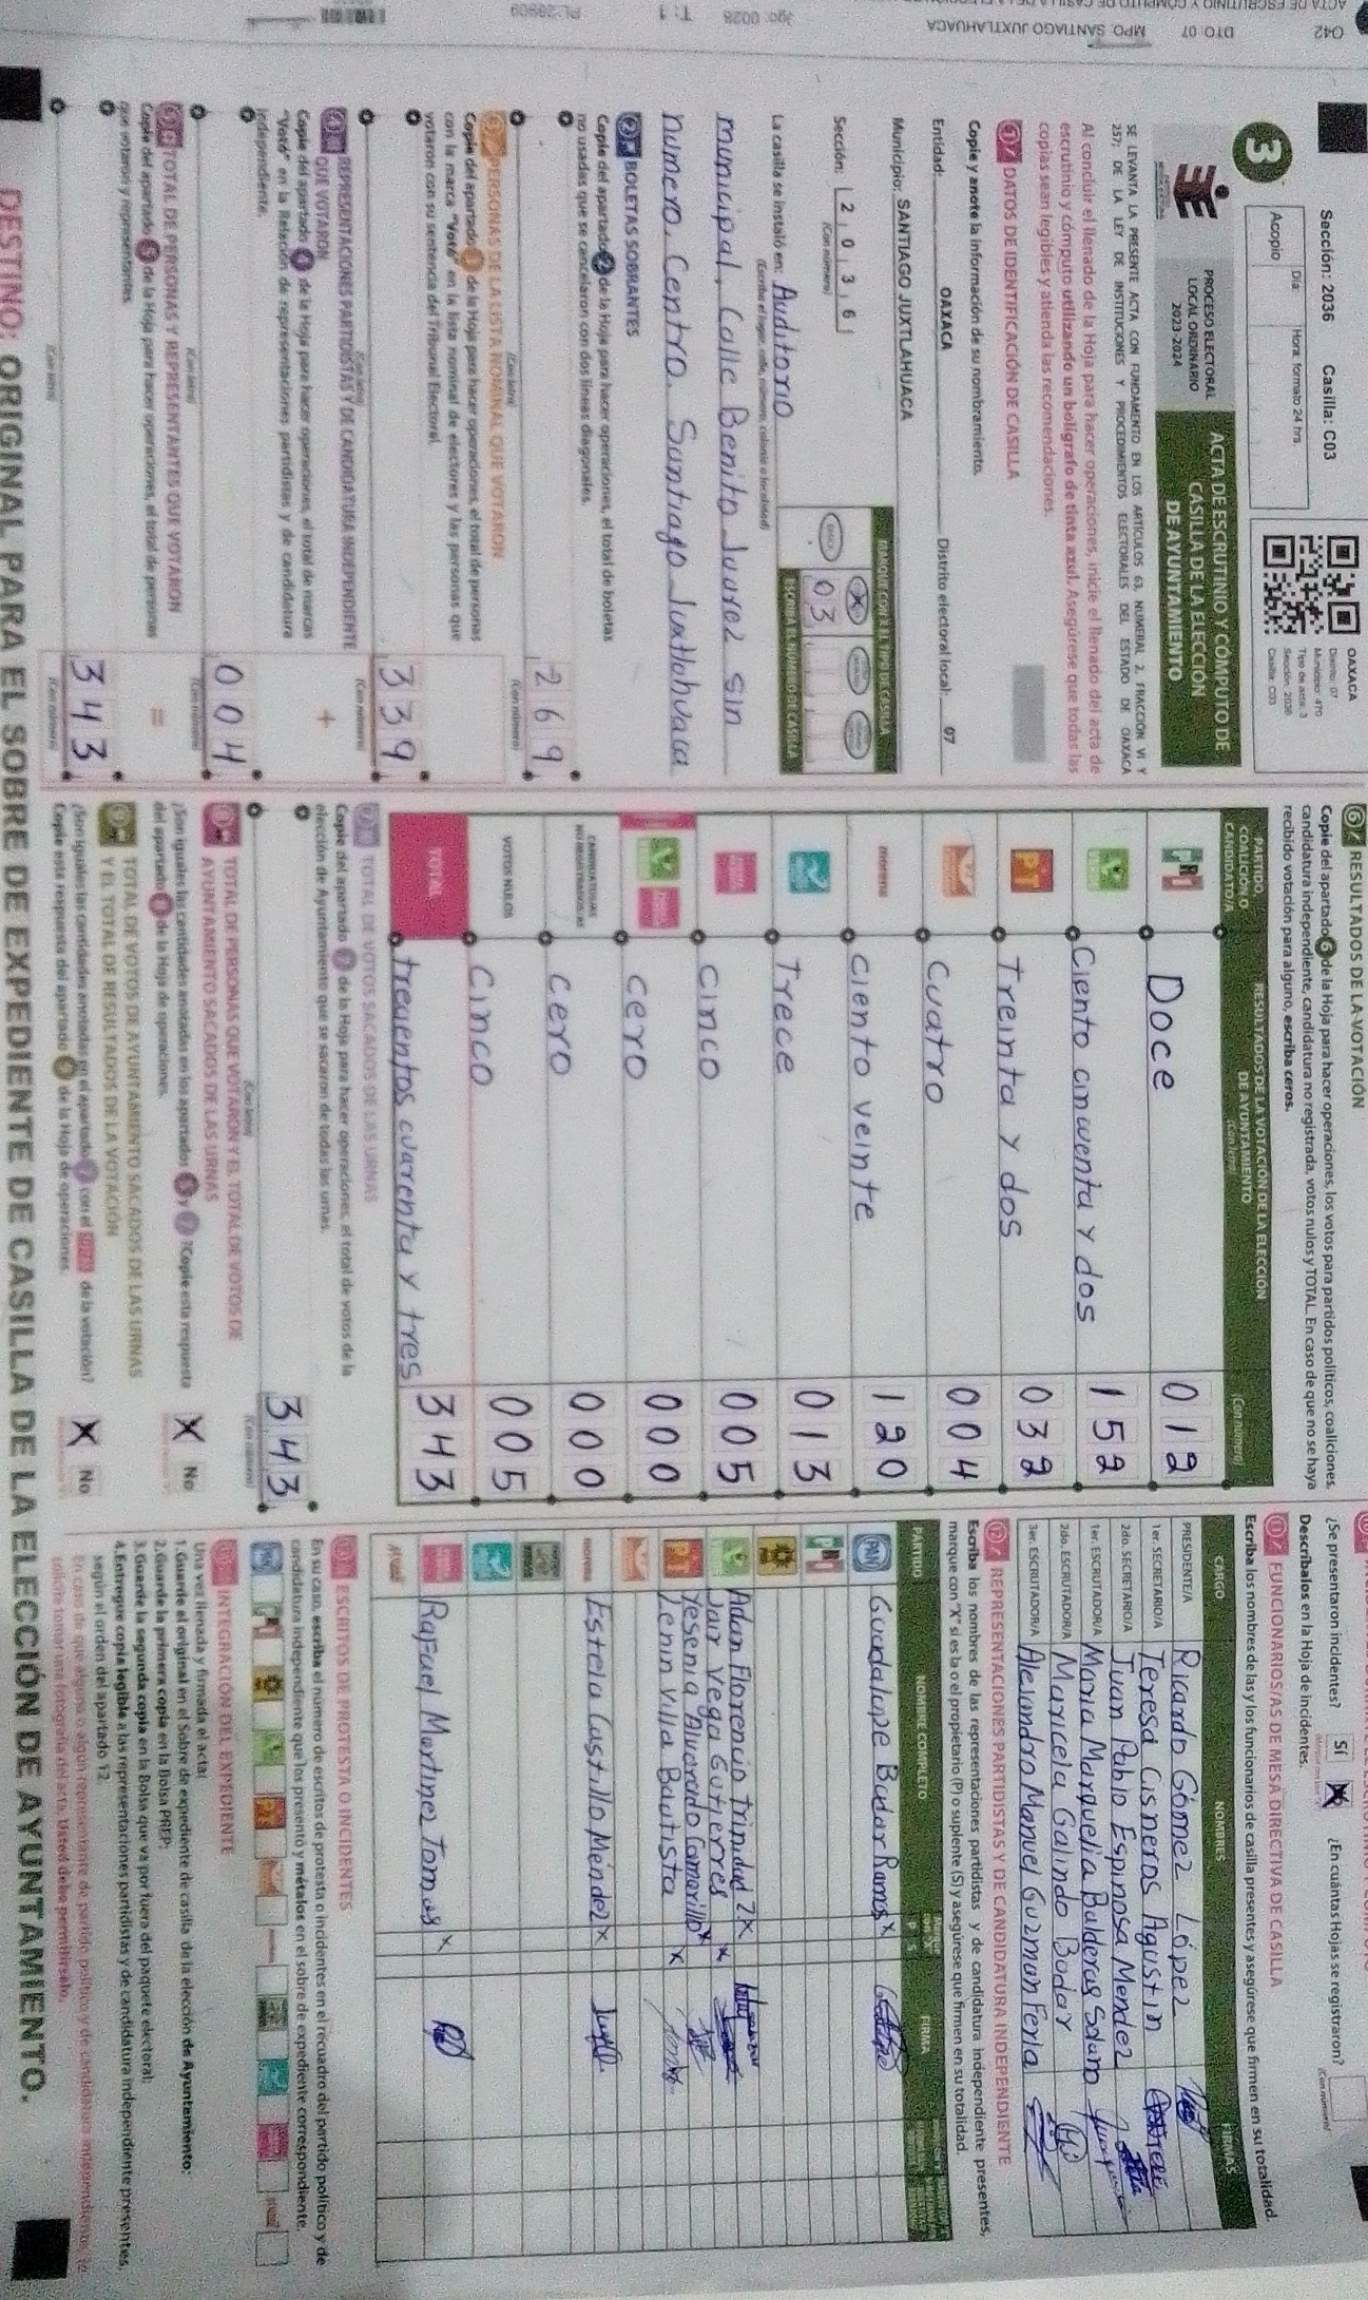 042 DTO 07 MPO. SANTIAGO JUXTLAHUACA 3go: 0028 T: 1 PL: 28909
Sección: 2036 Casilla: C03
Día: Hora: formato 24 hrs
Acopio
OAXACA
Distrito: 07
Municipio: 470
Tipo de acta: 3
Sección: 2036
Casilla: C03
3
PROCESO ELECTORAL
LOCAL ORDINARIO
2023-2024
ACTA DE ESCRUTINIO Y CÓMPUTO DE
CASILLA DE LA ELECCIÓN
DE AYUNTAMIENTO
SE LEVANTA LA PRESENTE ACTA CON FUNDAMENTO EN LOS ARTÍCULOS 63, NUMERAL 2, FRACCIÓN VI Y
257; DE LA LEY DE INSTITUCIONES Y PROCEDIMIENTOS ELECTORALES DEL ESTADO DE OAXACA
Al concluir el llenado de la Hoja para hacer operaciones, inicie el llenado del acta de
escrutinio y cómputo utilizando un bolígrafo de tinta azul. Asegúrese que todas las
copias sean legibles y atienda las recomendaciones.
1 DATOS DE IDENTIFICACIÓN DE CASILLA
Copie y anote la información de su nombramiento.
Entidad: OAXACA Distrito electoral local: 07
Municipio: SANTIAGO JUXTLAHUACA
Sección: 2 0 3 6
(Con número)
MARQUE CON X EL TIPO DE CASILLA
X
03
ESCRIBA EL NÚMERO DE CASILLA
La casilla se instaló en: Auditorio
(Escriba el lugar, calle, número, colonia o localidad)
municipal, Calle Benito Juarez sin
numero, Centro. Santiago Juxtlahuaca
2 BOLETAS SOBRANTES
Copie del apartado 2 de la Hoja para hacer operaciones, el total de boletas
no usadas que se cancelaron con dos líneas diagonales.
269
(Con letra) (Con número)
3 PERSONAS DE LA LISTA NOMINAL QUE VOTARON
Copie del apartado 3 de la Hoja para hacer operaciones, el total de personas
con la marca "Votó" en la lista nominal de electores y las personas que
votaron con su sentencia del Tribunal Electoral.
339
(Con letra) (Con número)
4 REPRESENTACIONES PARTIDISTAS Y DE CANDIDATURA INDEPENDIENTE
QUE VOTARON
Copie del apartado 4 de la Hoja para hacer operaciones, el total de marcas
"Votó" en la Relación de representaciones partidistas y de candidatura
independiente.
+
004
(Con letra) (Con número)
5 TOTAL DE PERSONAS Y REPRESENTANTES QUE VOTARON
Copie del apartado 5 de la Hoja para hacer operaciones, el total de personas
que votaron y representantes.
=
343
(Con letra) (Con número)
6 RESULTADOS DE LA VOTACIÓN
Copie del apartado 6 de la Hoja para hacer operaciones, los votos para partidos políticos, coaliciones,
candidatura independiente, candidatura no registrada, votos nulos y TOTAL. En caso de que no se haya
recibido votación para alguno, escriba ceros.
PARTIDO, COALICIÓN O CANDIDATO/A
RESULTADOS DE LA VOTACIÓN DE LA ELECCIÓN
DE AYUNTAMIENTO
(Con letra) (Con número)
PRI Doce 012
Ciento cincuenta y dos 152
PT Treinta y dos 032
Cuatro 004
morena ciento veinte 120
Trece 013
cinco 005
cero 000
cero 000
VOTOS NULOS Cinco 005
TOTAL trecientos cuarenta y tres 343
7 TOTAL DE VOTOS SACADOS DE LAS URNAS
Copie del apartado 7 de la Hoja para hacer operaciones, el total de votos de la
elección de Ayuntamiento que se sacaron de todas las urnas.
343
(Con letra) (Con número)
8 TOTAL DE PERSONAS QUE VOTARON Y EL TOTAL DE VOTOS DE
AYUNTAMIENTO SACADOS DE LAS URNAS
¿Son iguales las cantidades anotadas en los apartados 5 y 7? Copie esta respuesta
del apartado 8 de la Hoja de operaciones.
X No
9 TOTAL DE VOTOS DE AYUNTAMIENTO SACADOS DE LAS URNAS
Y EL TOTAL DE RESULTADOS DE LA VOTACIÓN
¿Son iguales las cantidades anotadas en el apartado 7 con el TOTAL de la votación?
Copie esta respuesta del apartado 9 de la Hoja de operaciones.
X No
¿Se presentaron incidentes? Sí X ¿En cuántas Hojas se registraron?
(Con número)
Descríbalos en la Hoja de incidentes.
11 FUNCIONARIOS/AS DE MESA DIRECTIVA DE CASILLA
Escriba los nombres de las y los funcionarios de casilla presentes y asegúrese que firmen en su totalidad.
CARGO NOMBRES FIRMAS
PRESIDENTE/A Ricardo Gómez López
1er. SECRETARIO/A Teresa Cisneros Agustin
2do. SECRETARIO/A Juan Pablo Espinosa Mendez
1er. ESCRUTADOR/A Maria Marquelia Balderas Solano
2do. ESCRUTADOR/A Maricela Galindo Bodar
3er. ESCRUTADOR/A Alejandro Manuel Guzman Feria
12 REPRESENTACIONES PARTIDISTAS Y DE CANDIDATURA INDEPENDIENTE
Escriba los nombres de las representaciones partidistas y de candidatura independiente presentes,
marque con "X" si es la o el propietario (P) o suplente (S) y asegúrese que firmen en su totalidad.
PARTIDO NOMBRE COMPLETO P S FIRMA
PAN Guadalupe Bodar Ramos X
PRI
Adan Florencio Trinidad Z X
Jair Vega Gutierres X
Yesenia Alvarado Camarillo X
PT Lenin Villa Bautista X
morena Estela Castillo Méndez X
Rafael Martinez Tomas X
13 ESCRITOS DE PROTESTA O INCIDENTES
En su caso, escriba el número de escritos de protesta o incidentes en el recuadro del partido político y de
candidatura independiente que los presentó y métalos en el sobre de expediente correspondiente.
INTEGRACIÓN DEL EXPEDIENTE
Una vez llenada y firmada el acta:
1. Guarde el original en el Sobre de expediente de casilla de la elección de Ayuntamiento;
2. Guarde la primera copia en la Bolsa PREP;
3. Guarde la segunda copia en la Bolsa que va por fuera del paquete electoral;
4. Entregue copia legible a las representaciones partidistas y de candidatura independiente presentes,
según el orden del apartado 12.
En caso de que alguna o algún representante de partido político y de candidatura independiente, le
solicite tomar una fotografía del acta, Usted debe permitírselo.
DESTINO: ORIGINAL PARA EL SOBRE DE EXPEDIENTE DE CASILLA DE LA ELECCIÓN DE AYUNTAMIENTO.